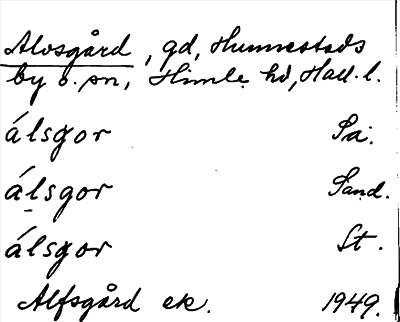 Alvsgård, gd, Hunnestads
by o. sn, Himle hd, Hall. l.
álsgor Sä.
álsgor Sand.
álsgor St.
Alfsgård ek. 1949.